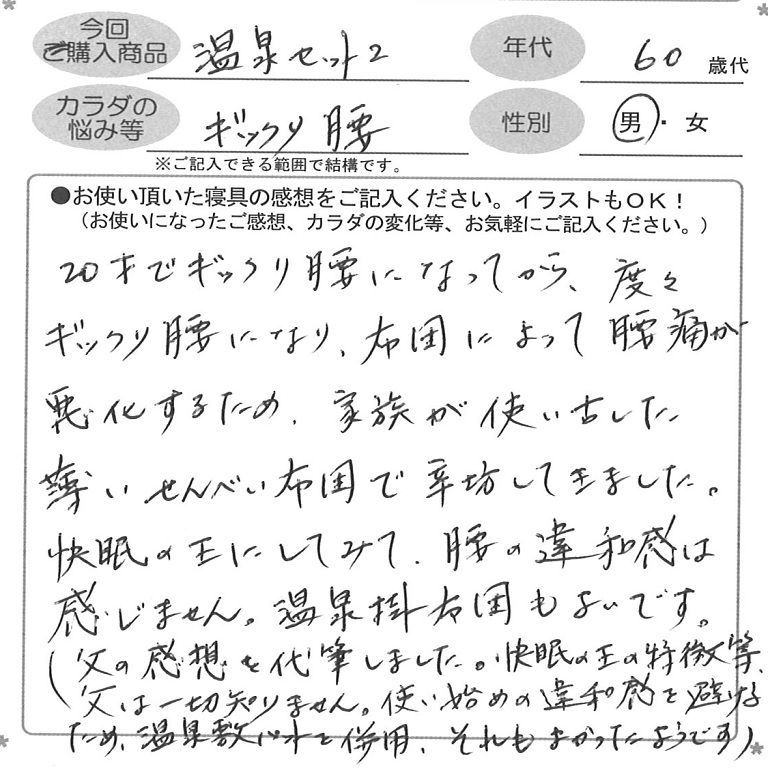 今回
ご購入商品
温泉セット2
年代
60歳代
カラダの
悩み等
ギックリ腰
性別
男・女
※ご記入できる範囲で結構です。
●お使い頂いた寝具の感想をご記入ください。イラストもOK！
（お使いになったご感想、カラダの変化等、お気軽にご記入ください。）
20才でギックリ腰になってから、度々
ギックリ腰になり、布団によって腰痛が
悪化するため、家族が使い古した
薄いせんべい布団で辛坊してきました。
快眠の王にしてみて、腰の違和感は
感じません。温泉掛布団もよいです。
（父の感想を代筆しました。快眠の王の特徴等、
父は一切知りません。使い始めの違和感を避ける
ため、温泉敷パットを併用、それもよかったようです）